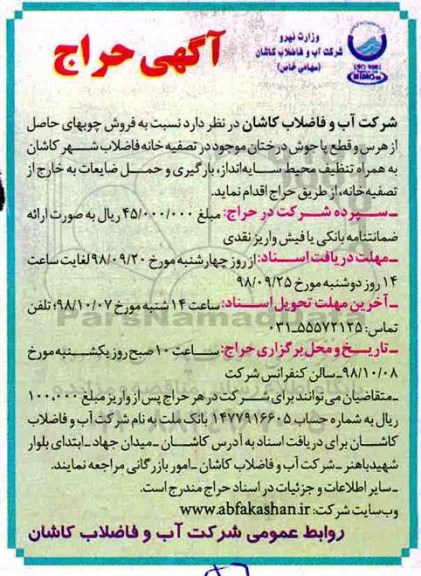 وزارت نیرو
شرکت آب و فاضلاب کاشان
(سهامی خاص)
آگهی حراج
شرکت آب و فاضلاب کاشان در نظر دارد نسبت به فروش چوبهای حاصل
از هرس و قطع پاجوش درختان موجود در تصفیه خانه فاضلاب شهر کاشان
به همراه تنظیف محیط سایه‌انداز، بارگیری و حمل ضایعات به خارج از
تصفیه‌خانه، از طریق حراج اقدام نماید.
ـ سپرده شرکت در حراج: مبلغ ۴۵/۰۰۰/۰۰۰ ریال به صورت ارائه
ضمانتنامه بانکی یا فیش واریز نقدی
ـ مهلت دریافت اسناد: از روز چهارشنبه مورخ ۹۸/۰۹/۲۰ لغایت ساعت
۱۴ روز دوشنبه مورخ ۹۸/۰۹/۲۵
ـ آخرین مهلت تحویل اسناد: ساعت ۱۴ شنبه مورخ ۹۸/۱۰/۰۷؛ تلفن
تماس: ۵۵۵۷۲۱۲۵-۰۳۱
ـ تاریخ و محل برگزاری حراج: ساعت ۱۰ صبح روز یکشنبه مورخ
۹۸/۱۰/۰۸ـ سالن کنفرانس شرکت
ـ متقاضیان می‌توانند برای شرکت در هر حراج پس از واریز مبلغ ۱۰۰,۰۰۰
ریال به شماره حساب ۱۴۷۷۹۱۶۶۰۵ بانک ملت به نام شرکت آب و فاضلاب
کاشان برای دریافت اسناد به آدرس کاشان ـ میدان جهاد ـ ابتدای بلوار
شهید باهنر ـ شرکت آب و فاضلاب کاشان ـ امور بازرگانی مراجعه نمایند.
ـ سایر اطلاعات و جزئیات در اسناد حراج مندرج است.
وب‌سایت شرکت: www.abfakashan.ir
روابط عمومی شرکت آب و فاضلاب کاشان